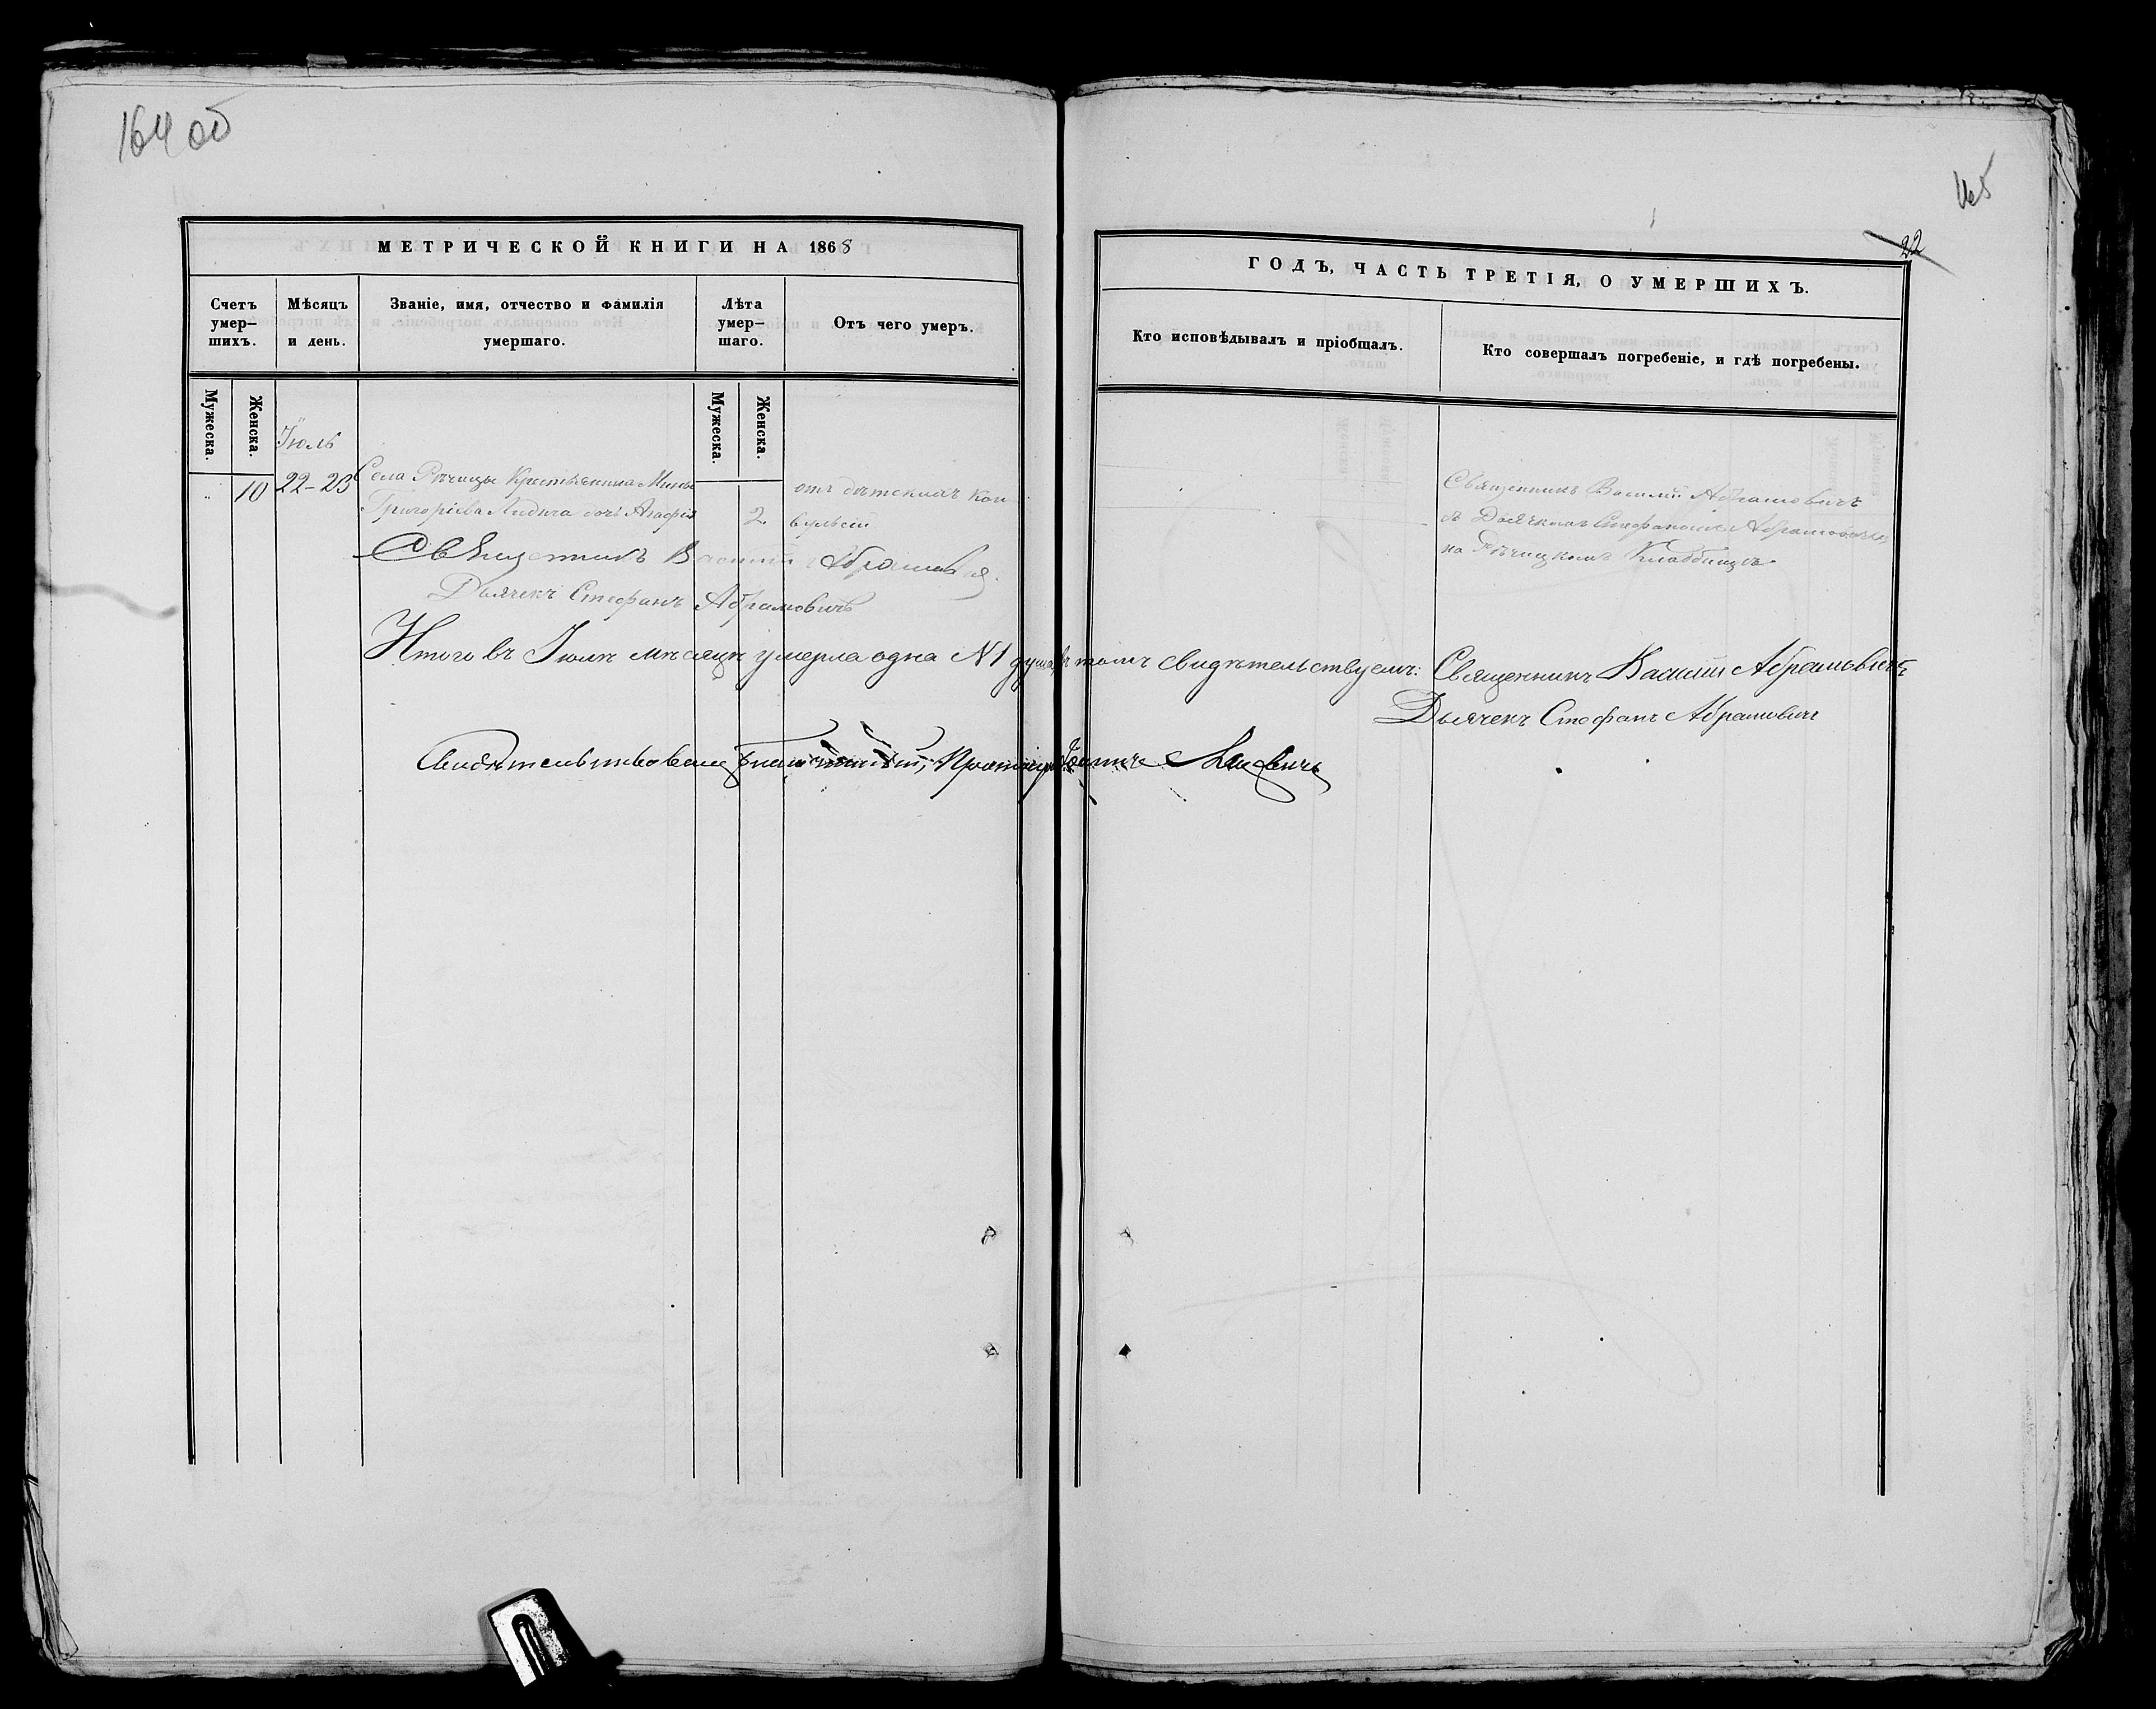 164 об
165
22
МЕТРИЧЕСКОЙ КНИГИ НА 1868
ГОДЪ, ЧАСТЬ ТРЕТІЯ, О УМЕРШИХЪ.
Счетъ умер–шихъ.
Мѣсяцъ и день.
Званіе, имя, отчество и фамилія умершаго.
Лѣта умер–шаго.
Отъ чего умеръ.
Кто исповѣдывалъ и пріобщалъ.
Кто совершалъ погребеніе, и гдѣ погребены.
Мужеска.
Женска.
Мужеска.
Женска.
Іюль
10 22–23 Села Рѣчицы Крестьянина
Григоріева дочь Агафія 2.
отъ дѣтскихъ кон
вульсій
Священникъ Василій Абрамовичъ
съ Дьячкомъ Стефаномъ Абрамовичемъ
на Рѣчицкомъ Кладбищѣ
Священникъ Василій Абрамовичъ
Дьячекъ Стефанъ Абрамовичъ
Итого въ Іюлѣ мѣсяцѣ умерла одна №1 душа въ томъ свидѣтельствуемъ: Священникъ Василій Абрамовичъ
Дьячекъ Стефанъ Абрамовичъ
Свидѣтельствовалъ Благочинный, Протоіерей Іоаннъ